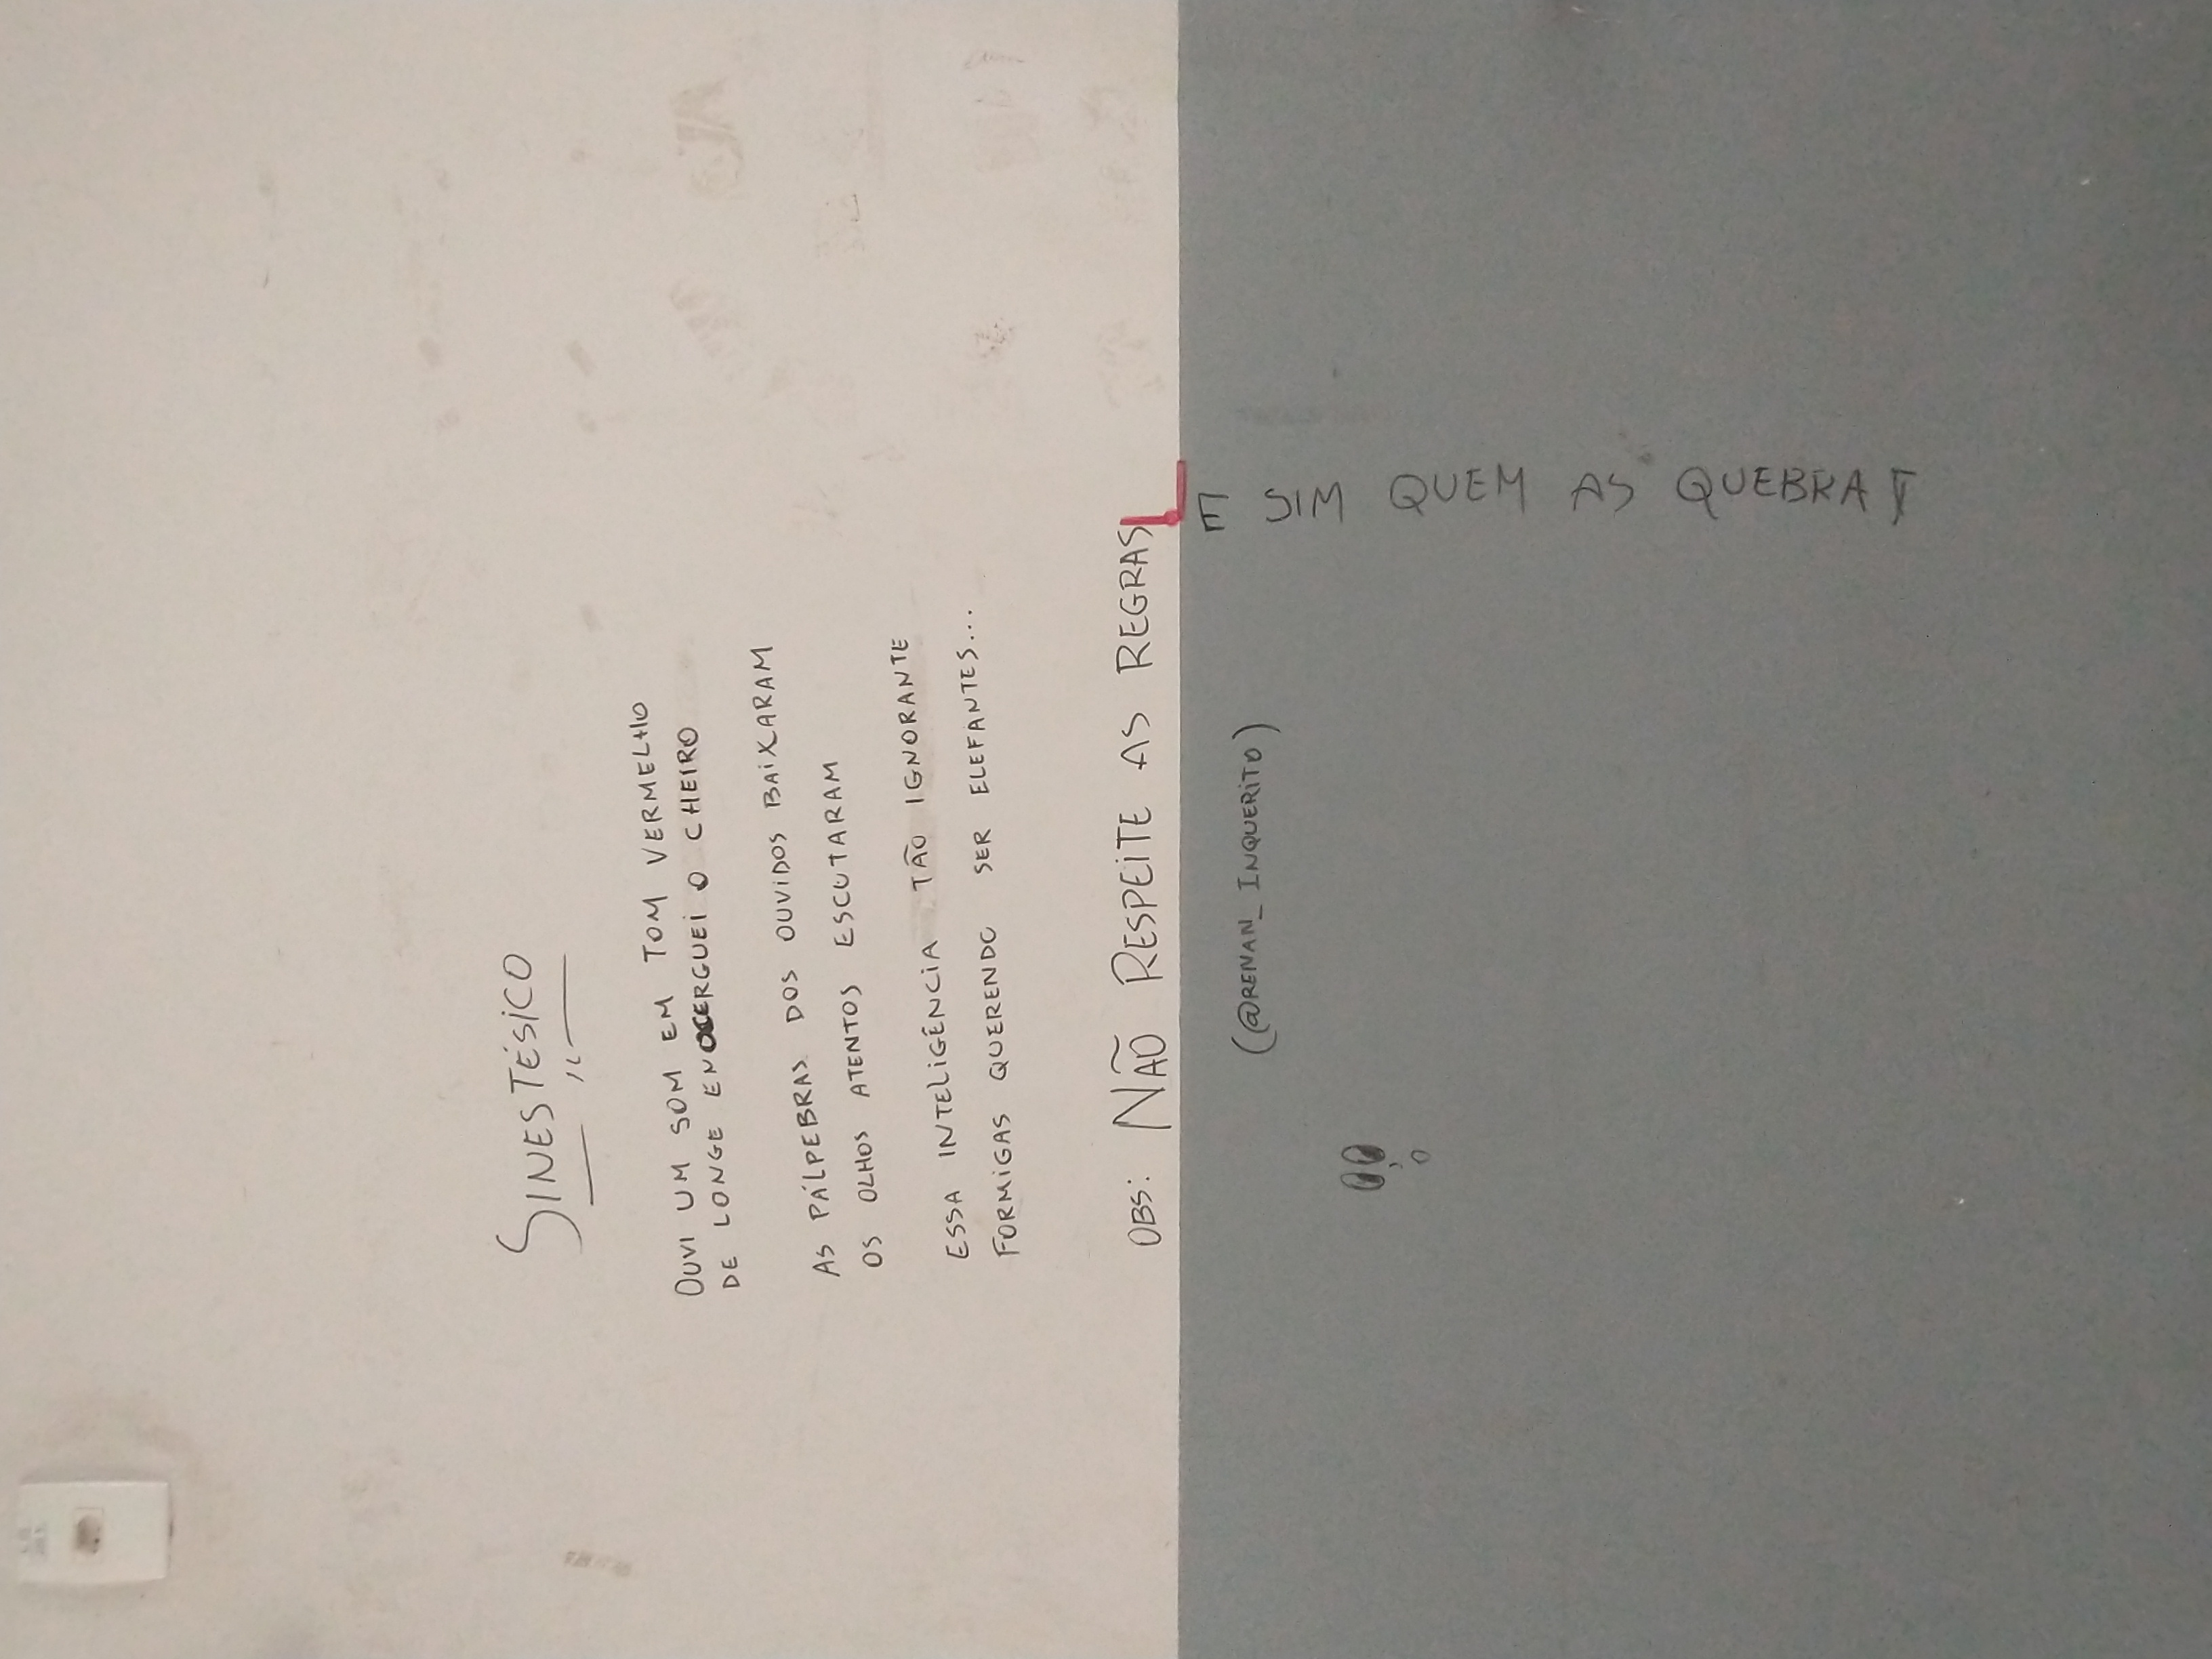 SINESTÉSICO
OUVI UM SOM EM TOM VERMELHO
DE LONGE ENXERGUEI O CHEIRO
AS PÁLPEBRAS DOS OUVIDOS BAIXARAM
OS OLHOS ATENTOS ESCUTARAM
ESSA INTELIGÊNCIA TÃO IGNORANTE
FORMIGAS QUERENDO SER ELEFANTES...
OBS: NÃO RESPEITE AS REGRAS
E SIM QUEM AS QUEBRA!
(@RENAN_INQUERITO)